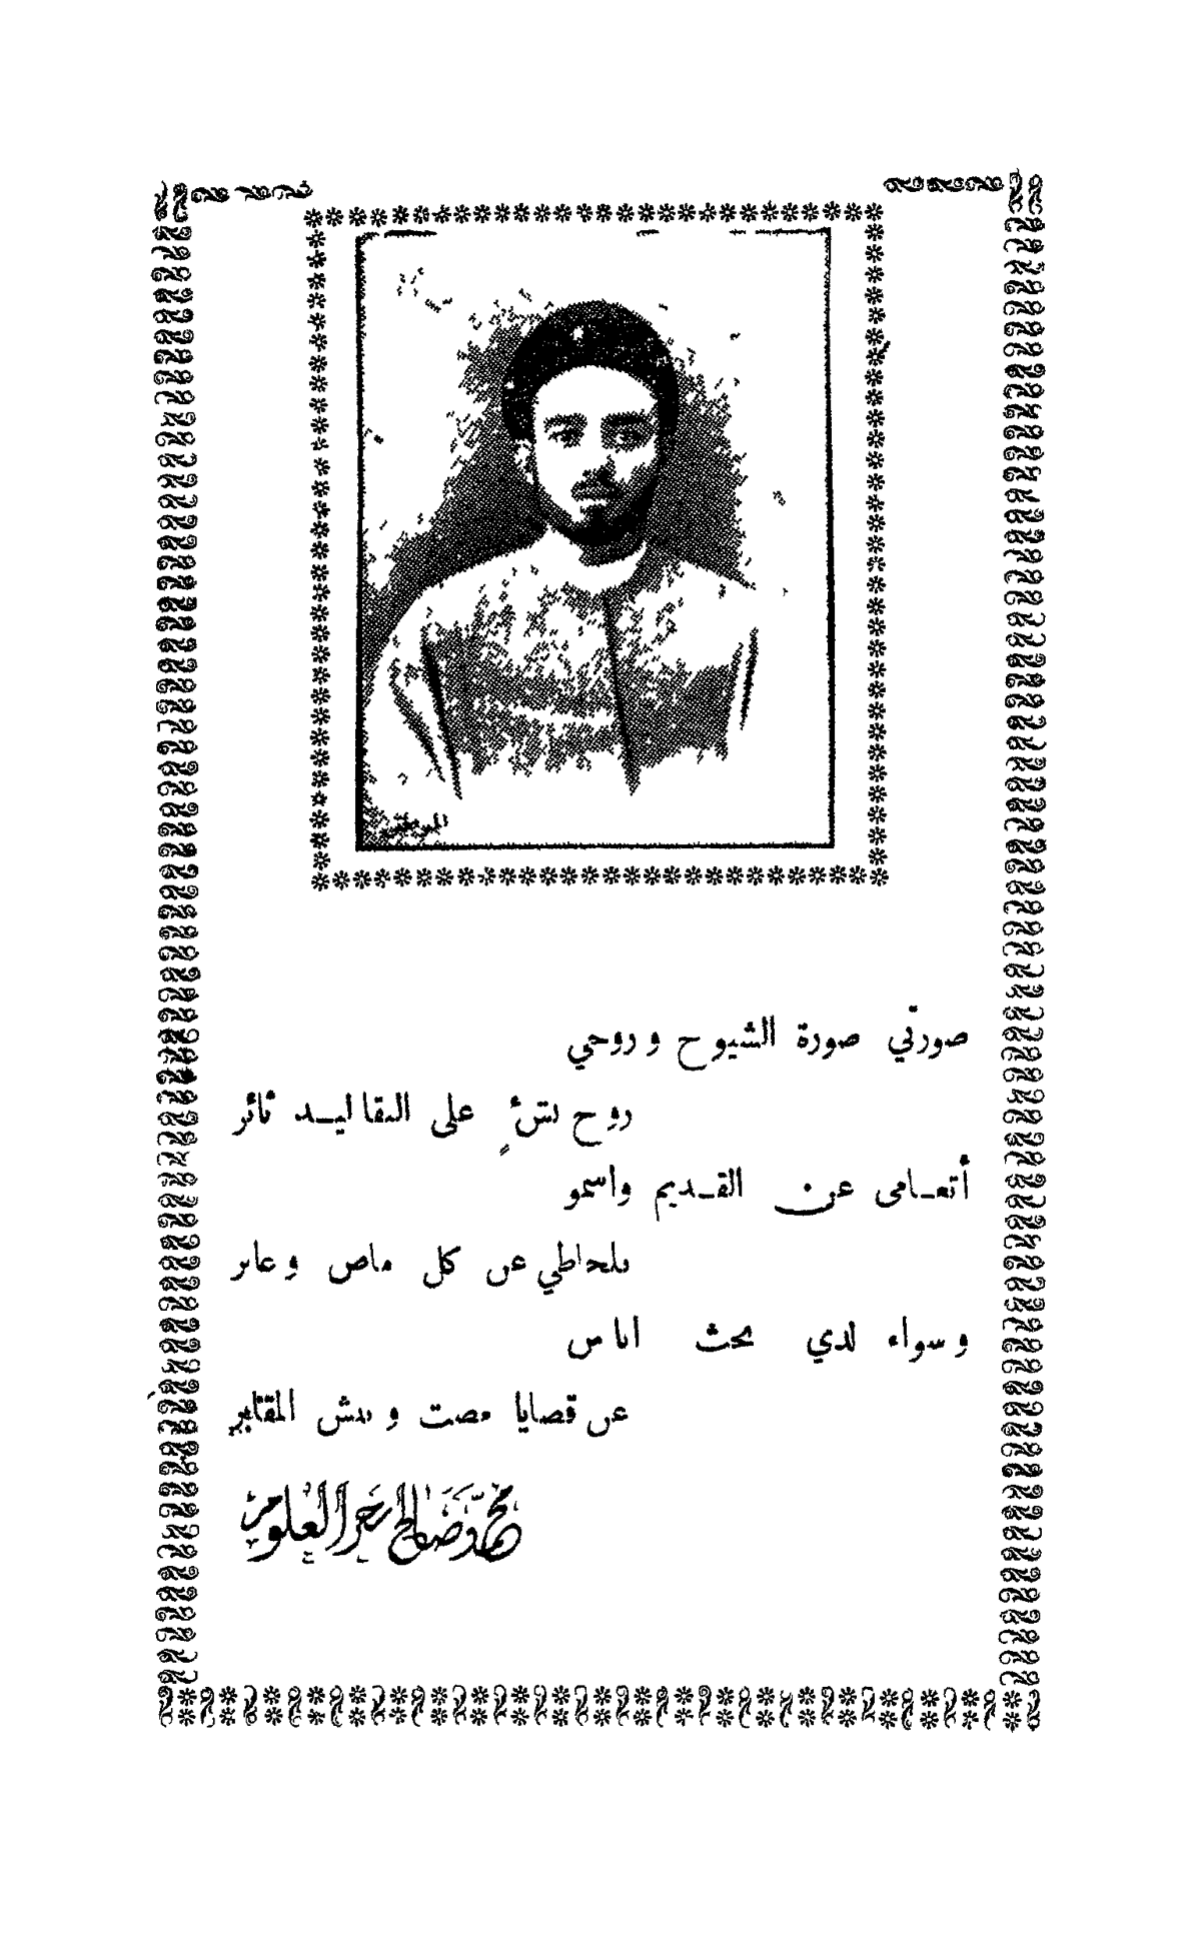 صورتي صورة الشيوخ وروحي
روح نشءٍ على التقاليد ثائر
أتعامى عن القديم واسمو
بلحاظي عن كل ماض وعابر
وسواء لدي بحث اناس
عن قضايا مضت ونبش المقابر
محمد صالح بحر العلوم